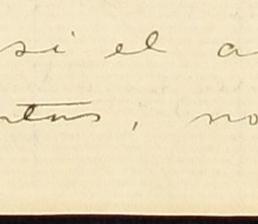 si el a
ntus, no